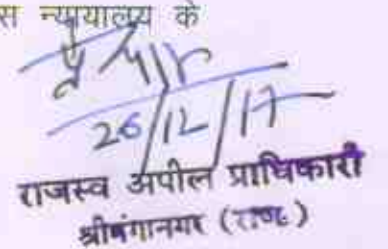 न्यायालय के
26/12/17
राजस्व अपील प्राधिकारी
श्रीगंगानगर (राज.)